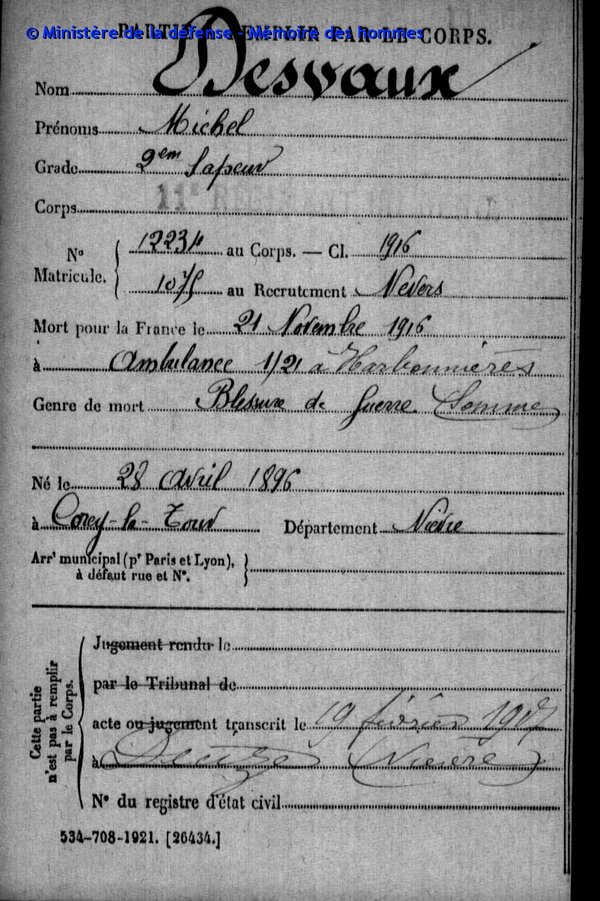 © Ministère de la défense - Mémoire des hommes
PARTIE À REMPLIR PAR LE CORPS.
Nom Desvaux
Prénoms Michel
Grade 2em Sapeur
Corps 11e
No Matricule. 12234 au Corps. — Cl. 1916
1075 au Recrutement Nevers
Mort pour la France le 21 Novembre 1916
à Ambulance 1/21 à Harbonnières
Genre de mort Blessure de guerre (Somme)
Né le 28 Avril 1896
à Corcy-la-Tour Département Nièvre
Arrt municipal (pr Paris et Lyon),
à défaut rue et N°.
Cette partie
n'est pas à remplir
par le Corps.
Jugement rendu le
par le Tribunal de
acte ou jugement transcrit le 19 février 1917
à (Nièvre)
N° du registre d'état civil
534-708-1921. [26434.]